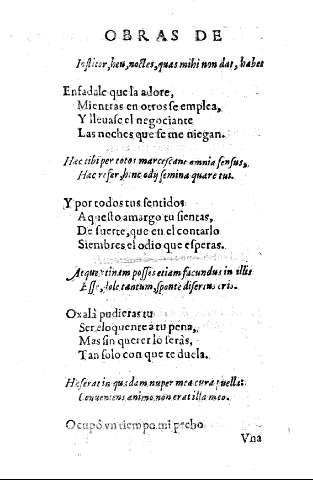 OBRAS DE
Institor, heu, noctes, quas mihi non dat, habet
Enfadale que la adore,
Mientras en otros se emplea,
Y lleuase el negociante
Las noches que se me niegan.
Hæc tibi per totos marcescant omnia sensus,
Hæc refer, hinc odij semina quære tui.
Y por todos tus sentidos
Aquesto amargo tu sientas,
De suerte, que en el contarlo
Siembres el odio que esperas.
Atque vtinam posses etiam facundus in illis
Esse, dole tantum, sponte disertus eris.
Oxalà pudieras tu
Ser eloquente a tu pena,
Mas sin querer lo seràs,
Tan solo con que te duela.
Hæserat in quadam nuper mea cura puella:
Conueniens animo non erat illa meo.
Ocupò vn tiempo mi pecho
Vna